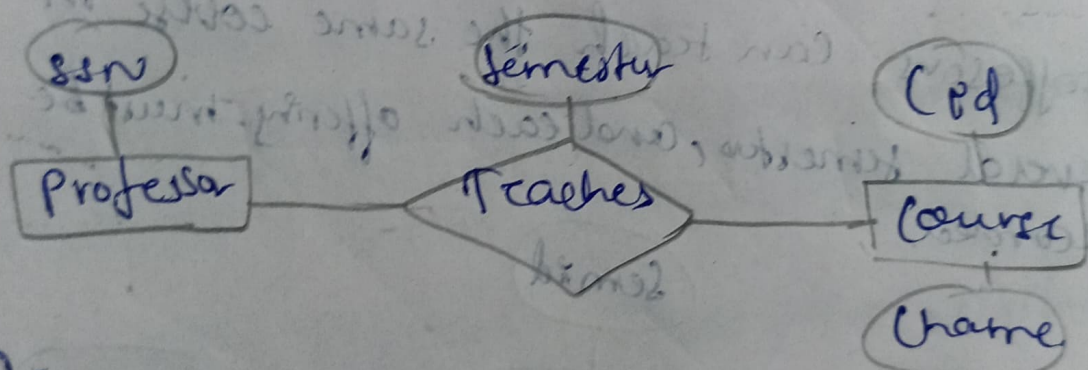 ssn
Semester
Cid
Professor
Teaches
Course
Cname